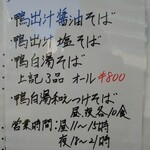 ・鴨出汁醤油そば
・鴨出汁塩そば
・鴨白湯そば
上記3品 オール¥800
・鴨白湯和えつけそば
昼、夜各10食
営業時間:昼11〜15時
夜18〜21時